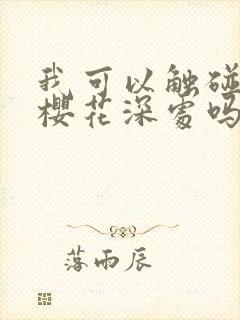 我可以触碰
樱花深处吗
落雨辰